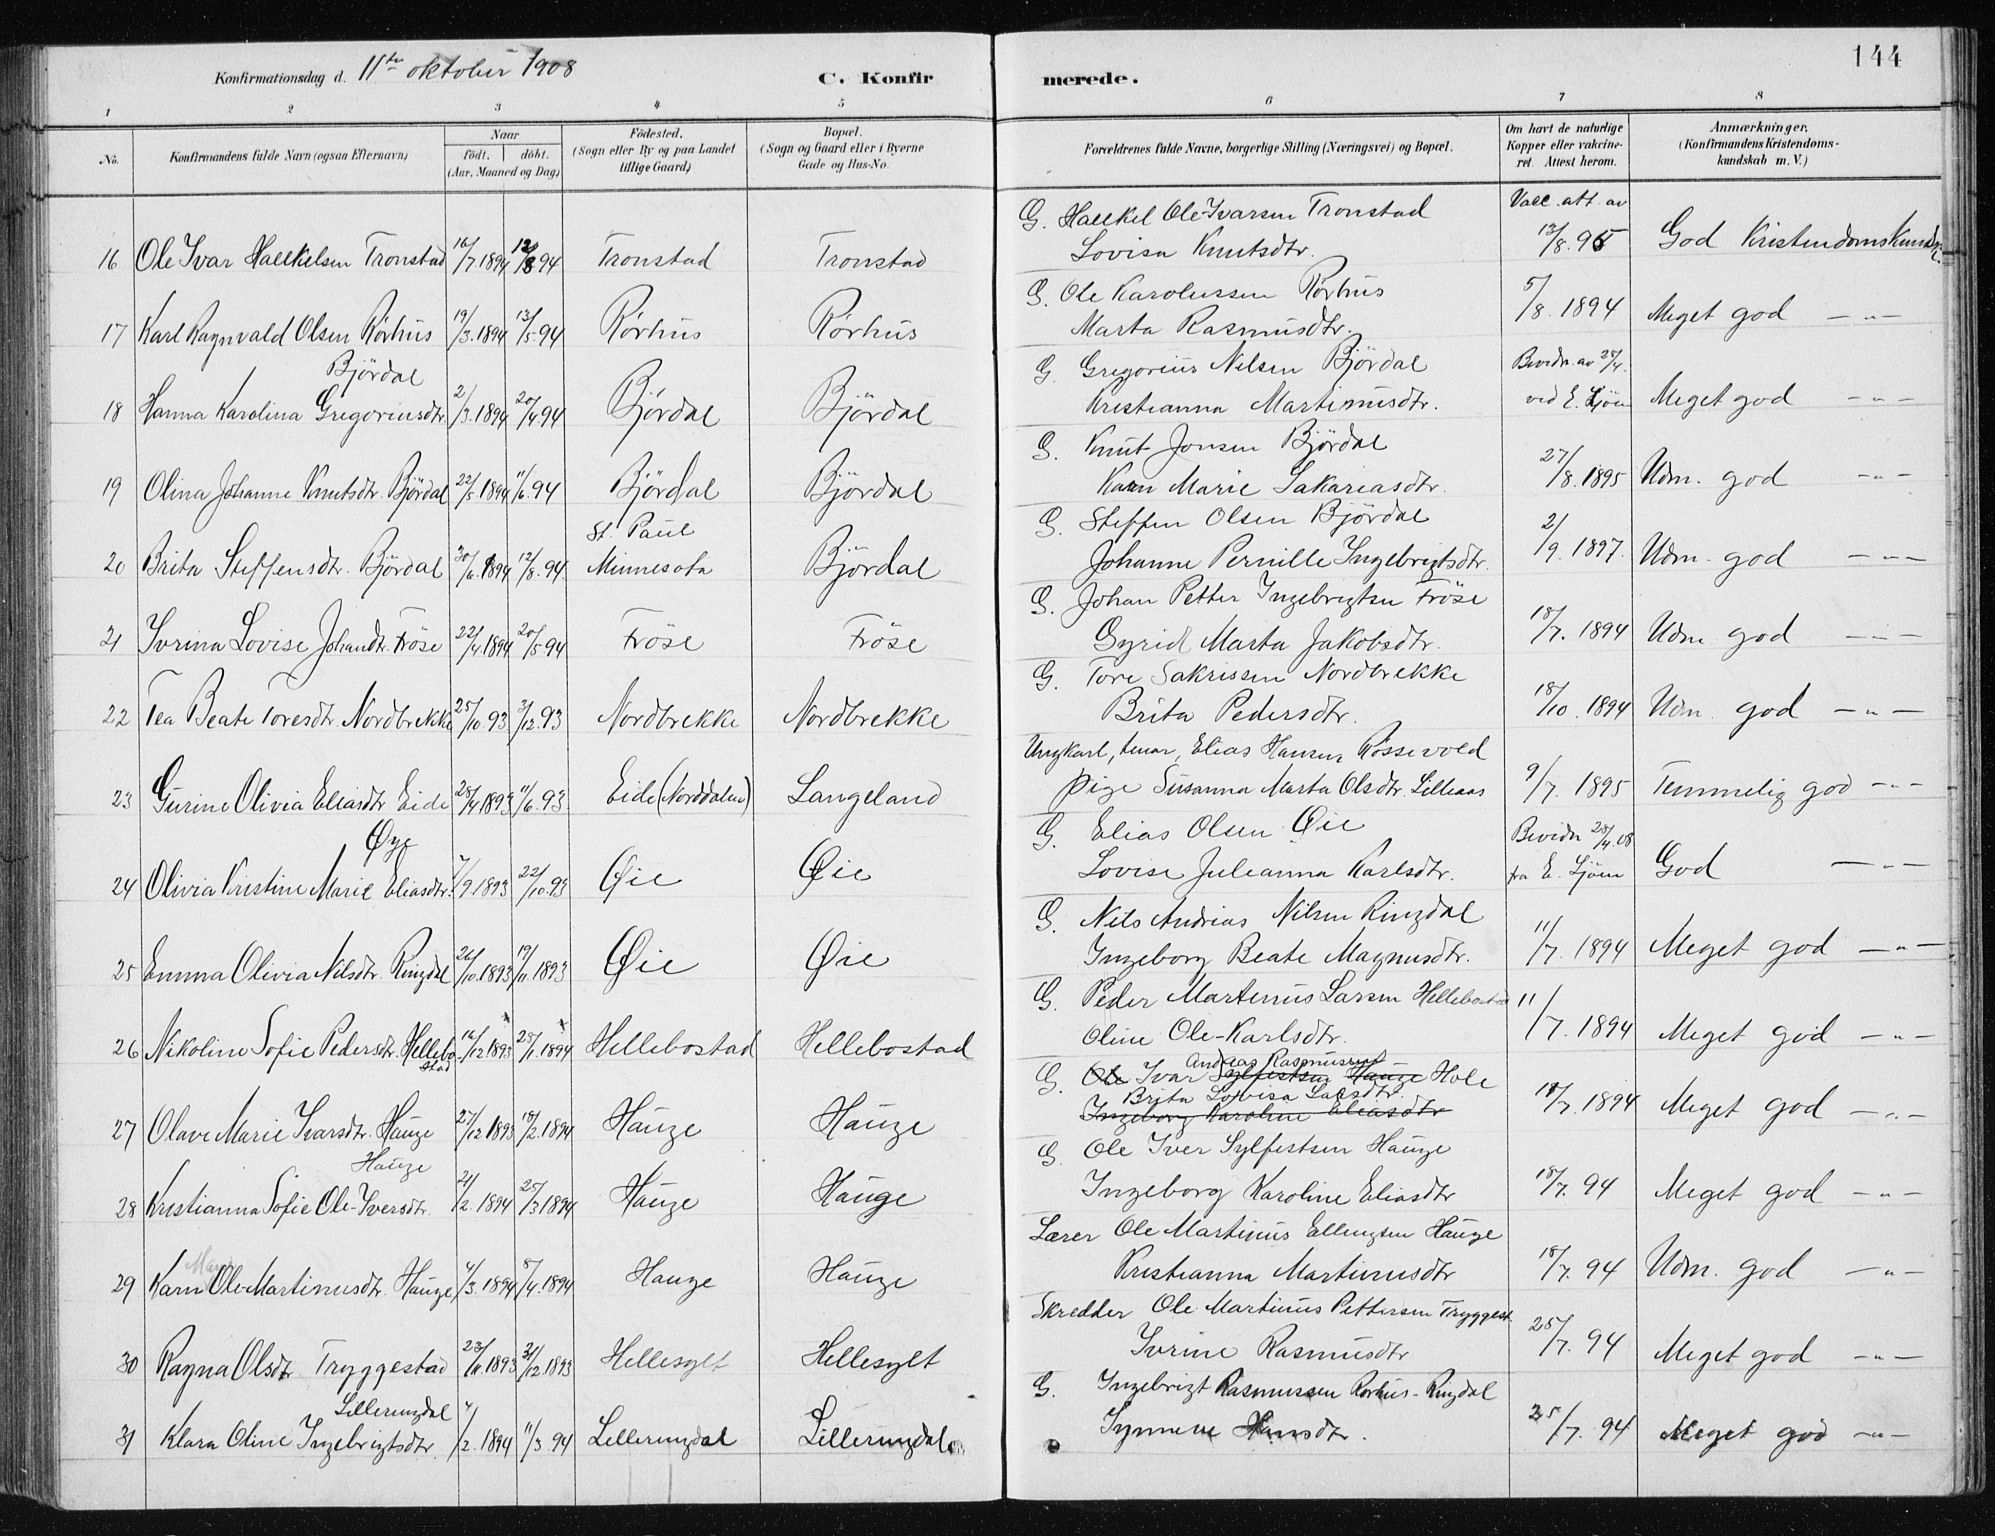 Konfirmationsdag d. 11te oktober 1908
C. Konfirmerede.
144
1 2 3 4 5 6 7 8
No.
Konfirmandens fulde Navn (ogsaa Efternavn)
Naar
födt. döbt.
(Aar, Maaned og Dag)
Födested.
(Sogn eller By og paa Landet
tillige Gaard)
Bopæl.
(Sogn og Gaard eller i Byerne
Gade og Hus-No.
Forældrenes fulde Navne, borgerlige Stilling (Næringsvei) og Bopæl.
Om havt de naturlige
Kopper eller vakcine-
ret. Attest herom.
Anmærkninger.
(Konfirmandens Kristendoms-
kundskab m. V.)
G. Haelkel Ole-Ivarsen Tronstad Vacc. att. av
16 Ole Ivar Haelkelsen Tronstad 16/7.1894 12/8 94 Tronstad Tronstad Lovisa Knutsdtr. 13/8.95 God Kristendomskundsk.
G. Ole Karolussen Rörhus
17 Karl Ragnvald Olsen Rörhus 19/3.1894 13/5.94 Rörhus Rörhus Marta Rasmusdtr. 5/8.1894 Meget god — " —
Björdal G. Gregorius Nilsen Björdal Bevidn. av 28/4.
18 Hanna Karolina Gregoriusdtr. 2/3.1894 20/4.94 Björdal Björdal Kristianna Martinusdtr. ved E. Ljöen Meget god — " —
G. Knut Jonsen Björdal
19 Olina Johanne Knutsdtr. Björdal 22/5.1894 11/6.94 Björdal Björdal Karn Marie Sakariasdtr. 27/8.1895 Udm. god — " —
St. Paul G. Steffen Olsen Björdal
20 Brita Steffensdtr. Björdal 30/6.1894 12/8.94 Minnesota Björdal Johanne Pernille Ingebrigtsdtr. 2/9.1897. Udm. god — " —
G. Johan Petter Ingebrigtsen Fröse
21 Ivrina Lovise Johandtr. Fröse 22/4.1894 20/5.94 Fröse Fröse Gyrid Marta Jakobsdtr. 18/7.1894 Udm. god — " —
G. Tore Sakrissen Nordbrekke
22 Tea Beate Toresdtr. Nordbrekke 25/10.93 31/12.93 Nordbrekke Nordbrekke Brita Pedersdtr. 18/10.1894 Udm. god — " —
Ungkarl, Elias Hansen Rössevold
23 Gurine Olivia Eliasdtr Eide 28/4.1893 11/6.93 Eide (Norddalen) Langeland Pige Susanna Marta Olsdtr. Lilleaas 9/7.1895 Temmelig god — " —
Øye G. Elias Olsen Øie Bevidn 28/4.08
24 Olivia Kristine Marie Eliasdtr. 7/9.1893 22/10.93 Øie Øie Lovise Julianna Karlsdtr. fra E. Ljöen God — " —
G. Nils Andrias Nilsen Ringdal
25 Emma Olivia Nilsdtr. Ringdal 26/10.1893 19/11.1893 Øie Øie Ingeborg Beate Magnusdtr. 11/7.1894 Meget god — " —
G. Peder Martinus Larsen Hellebostad
26 Nikoline Sofie Pedersdtr. Hellebo- 16/12 1893 25/1.1894 Hellebostad Hellebostad Oline Ole-Karlsdtr. 11/7.1894 Meget god — " —
stad
Andreas Rasmussen
G. Ole Ivar Sylfestsen Hauge Hole
Brita Lovisa Larsdtr.
27 Olave Marie Ivarsdtr. Hauge 27/12 1893 18/2.1894 Hauge Hauge Ingeborg Karoline Eliasdtr 18/7.1894 Meget god — " —
Hauge G. Ole Iver Sylfestsen Hauge
28 Kristianna Sofie Ole-Iversdtr. 21/2.1894 25/3 1894 Hauge Hauge Ingeborg Karoline Eliasdtr 18/7.94 Meget god — " —
Marie Lærer Ole Martinus Ellingsen Hauge
29 Karn Ole-Martinusdtr. Hauge 4/3.1894 8/4.1894 Hauge Hauge Kristianna Martinusdtr 18/7.94 Udm. god — " —
Skredder Ole Martinus Pettersen Tryggest.
30 Ragna Olsdtr. Tryggestad 23/11.1893 31/12 1893 Hellesylt Hellesylt Ivrine Rasmusdtr 25/7.94 Meget god — " —
Lilleringdal G. Ingebrigt Rasmussen Rörhus-Ringdal
31 Klara Oline Ingebrigtsdtr 4/2.1894 11/3.94 Lilleringdal Lilleringdal Synneve Hansdtr. 25/7.94 Meget god — " —